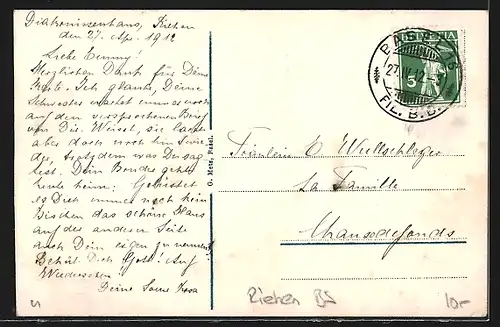 Diakonissenhaus, Riehen
den 27. Apr. 1912
Liebe Emmy!
Herzlichen Dank für Deine
Karte. Ich glaube, Deine
Schwester wartet immer noch
auf den versprochenen Brief
von Dir. Weisst, sie lache
aber doch
trotzdem was Du sag
test. Dein Bruder geht
heute heim.
es Dich immer noch kein
Bischen das schöne Haus
auf der anderen Seite
auch Dein eigen zu nennen?
Behüt Dich Gott! Auf
Wiedersehen
Deine
G. Metz, Basel.
BASEL
27.IV.12
FIL. B.B.
HELVETIA
5
Fräulein E. Wullschleger
La Famille
Chauxdefonds
Riehen BS
10.-